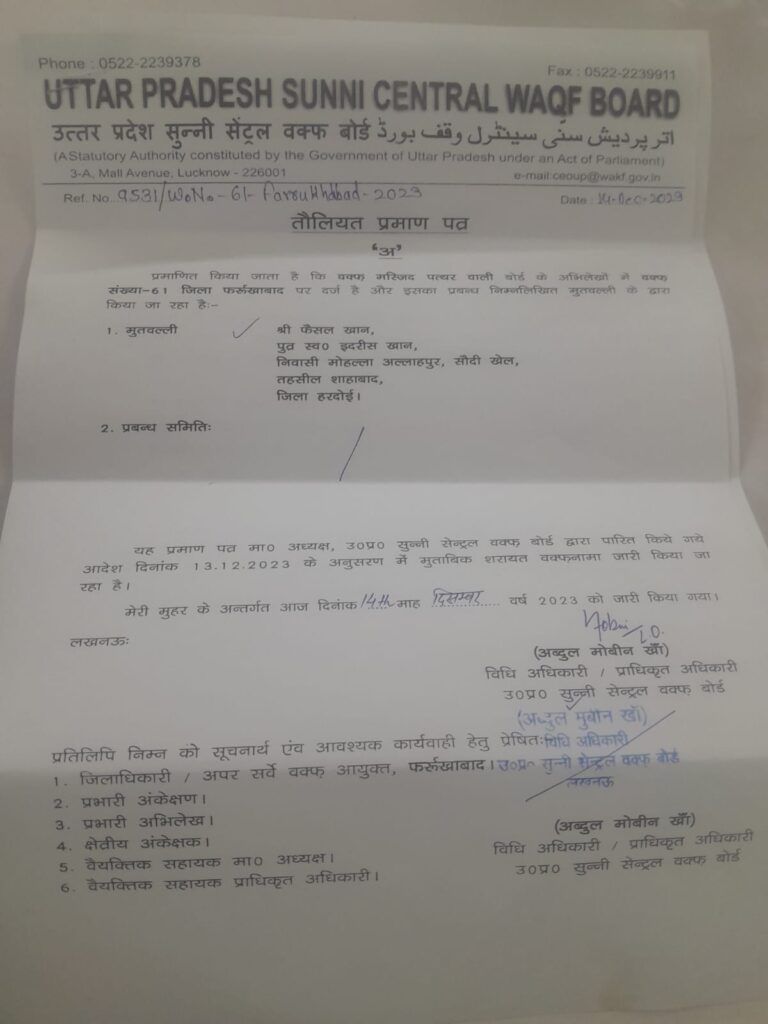 Phone : 0522-2239378
Fax : 0522-2239911
UTTAR PRADESH SUNNI CENTRAL WAQF BOARD
उत्तर प्रदेश सुन्नी सेंट्रल वक्फ बोर्ड اتر پردیش سنی سینٹرل وقف بورڈ
(A Statutory Authority constituted by the Government of Uttar Pradesh under an Act of Parliament)
3-A, Mall Avenue, Lucknow - 226001
e-mail:ceoup@wakf.gov.in
Ref. No. 9531/W.No. - 61- Farrukhabad - 2023
Date : 14-Dec-2023
तौलियत प्रमाण पत्र
'अ'
प्रमाणित किया जाता है कि वक्फ़ मस्जिद पत्थर वाली बोर्ड के अभिलेखों में वक्फ़
संख्या-61 जिला फर्रूखाबाद पर दर्ज है और इसका प्रबन्ध निम्नलिखित मुतवल्ली के द्वारा
किया जा रहा है:-
1. मुतवल्ली श्री फैसल खान,
पुत्र स्व0 इदरीस खान,
निवासी मोहल्ला अल्लाहपुर, सौदी खेल,
तहसील शाहाबाद,
जिला हरदोई।
2. प्रबन्ध समितिः
यह प्रमाण पत्र मा0 अध्यक्ष, उ0प्र0 सुन्नी सेन्ट्रल वक्फ़ बोर्ड द्वारा पारित किये गये
आदेश दिनांक 13.12.2023 के अनुसरण में मुताबिक शरायत वक्फ़नामा जारी किया जा
रहा है।
मेरी मुहर के अन्तर्गत आज दिनांक 14th माह दिसम्बर वर्ष 2023 को जारी किया गया।
लखनऊः
(अब्दुल मोबीन खाँ)
विधि अधिकारी / प्राधिकृत अधिकारी
उ0प्र0 सुन्नी सेन्ट्रल वक्फ़ बोर्ड
(अब्दुल मुबीन खाँ)
प्रतिलिपि निम्न को सूचनार्थ एंव आवश्यक कार्यवाही हेतु प्रेषितः विधि अधिकारी
1. जिलाधिकारी / अपर सर्वे वक्फ़ आयुक्त, फर्रूखाबाद। उ०प्र० सुन्नी सेन्ट्रल वक्फ़ बोर्ड
लखनऊ
2. प्रभारी अंकेक्षण।
3. प्रभारी अभिलेख।
4. क्षेत्रीय अंकेक्षक।
5. वैयक्तिक सहायक मा0 अध्यक्ष।
6. वैयक्तिक सहायक प्राधिकृत अधिकारी।
(अब्दुल मोबीन खाँ)
विधि अधिकारी / प्राधिकृत अधिकारी
उ0प्र0 सुन्नी सेन्ट्रल वक्फ़ बोर्ड